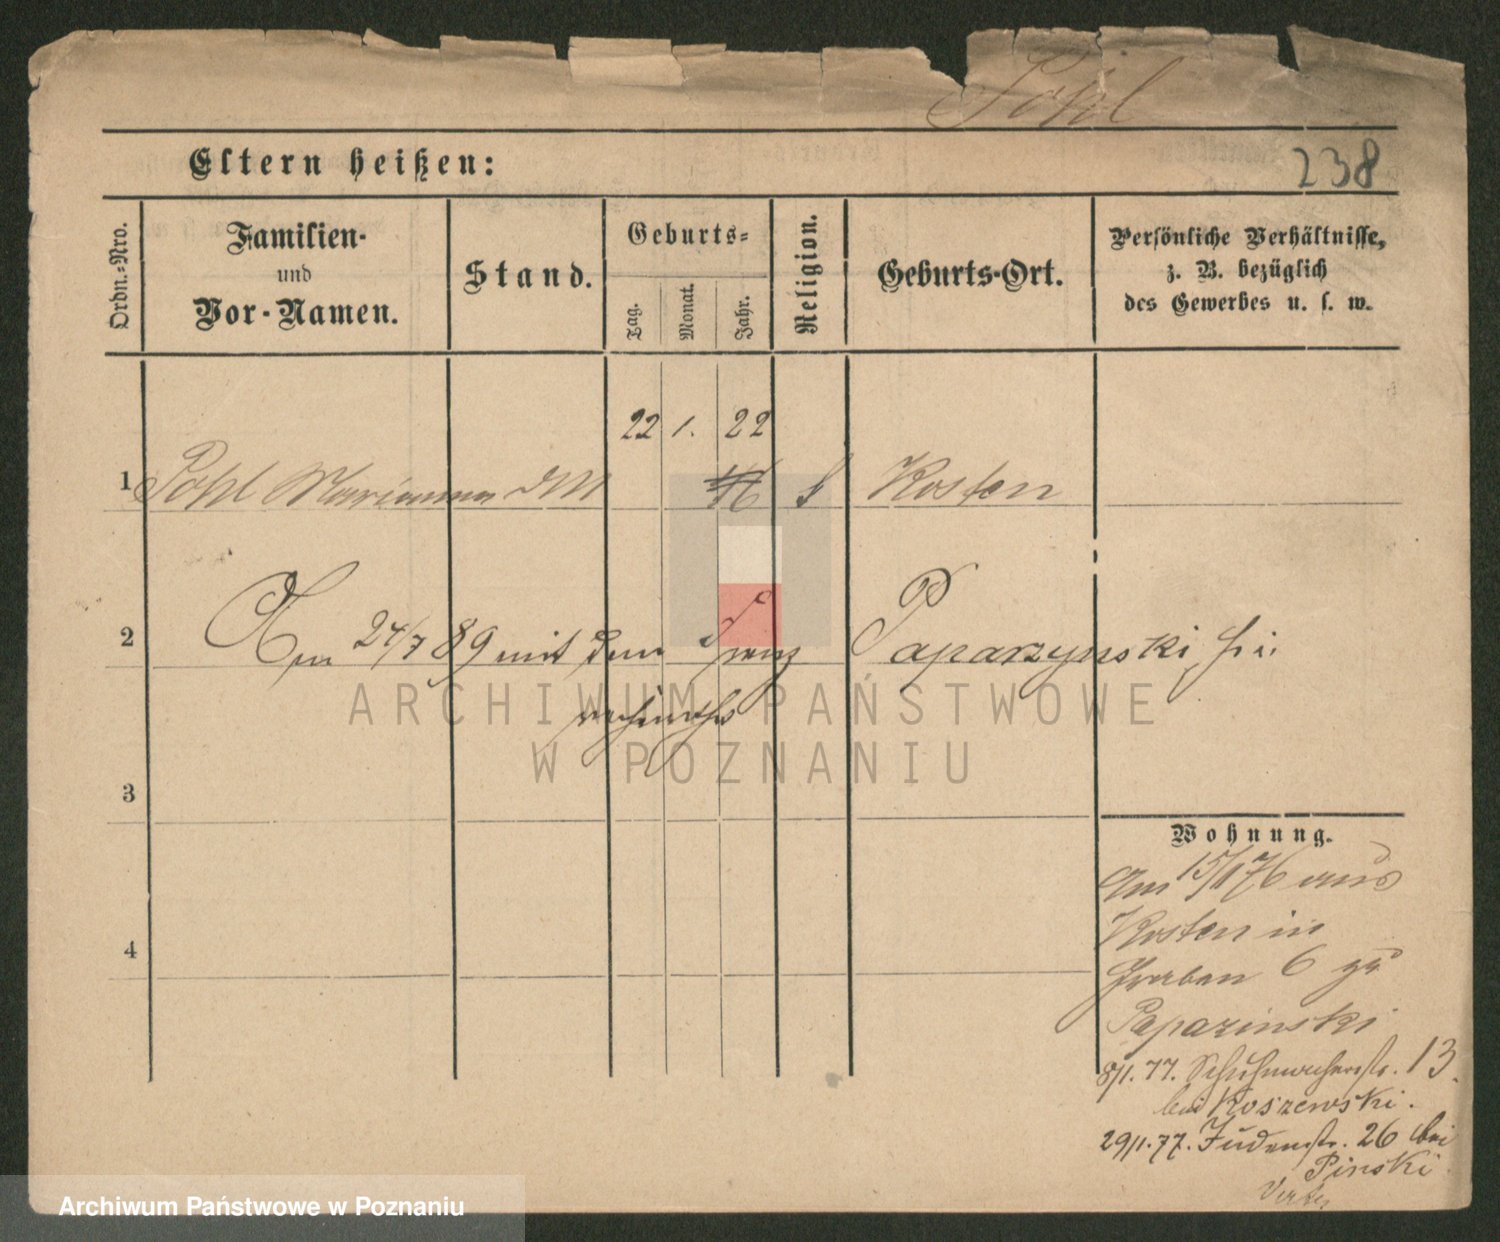 Pohl
Eltern heißen:
238
Ordn.-Nro.
Familien-
und
Vor-Namen.
Stand.
Geburts-
Tag.
Monat.
Jahr.
Religion.
Geburts-Ort.
Persönliche Verhältnisse,
z. B. bezüglich
des Gewerbes u. s. w.
22 1. 22
1 Pohl Marianna DM 46 k Kosten
2 Am 24/7 89 mit dem Franz Paparzynski hier
verheirathet
ARCHIWUM PAŃSTWOWE
W POZNANIU
3
Wohnung.
Am 15/1 76 aus
Kosten in
4
Graben 6 zu
Paparinski
8/1. 77. Schuhmacherstr. 13.
bei Koszewski.
29/1. 77. Judenstr. 26 bei
Pinski
Archiwum Państwowe w Poznaniu